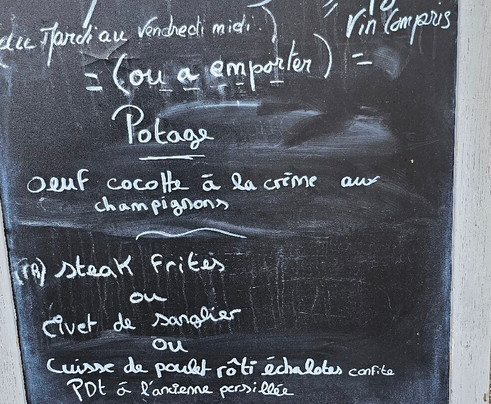 du Mardi au Vendredi midi)
Vin Compris
= (ou a emporter) =
Potage
oeuf cocotte à la crème aux
champignons
steak frites
ou
civet de sanglier
ou
cuisse de poulet rôti échalotes confite
PDt à l'ancienne persillée